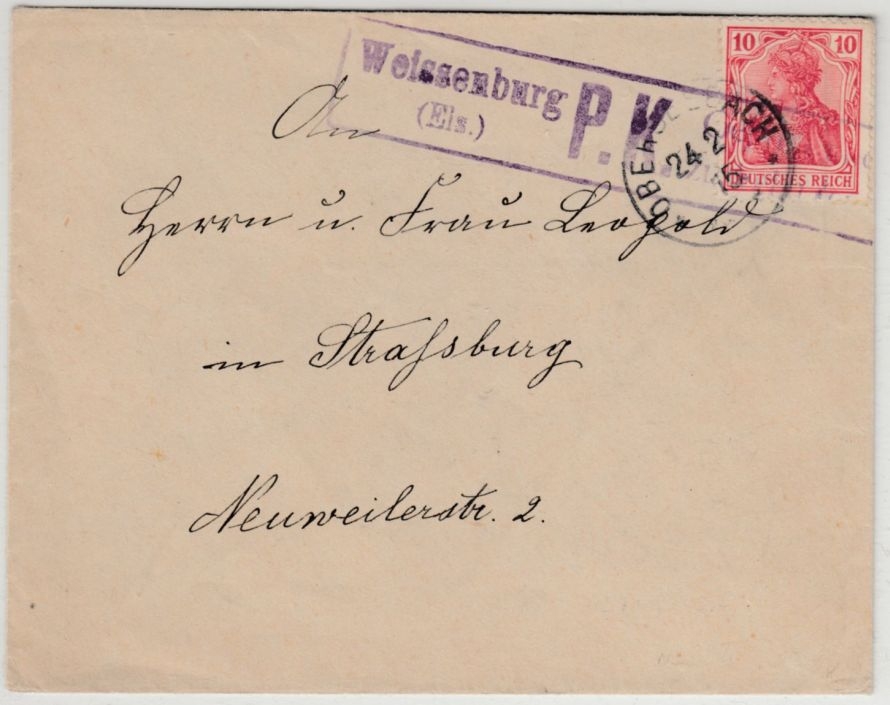 Weissenburg
(Els.)
P.K.
10 10
DEUTSCHES REICH
24 2
15
An
Herrn u. Frau Leopold
in Strassburg
Neuweilerstr. 2.